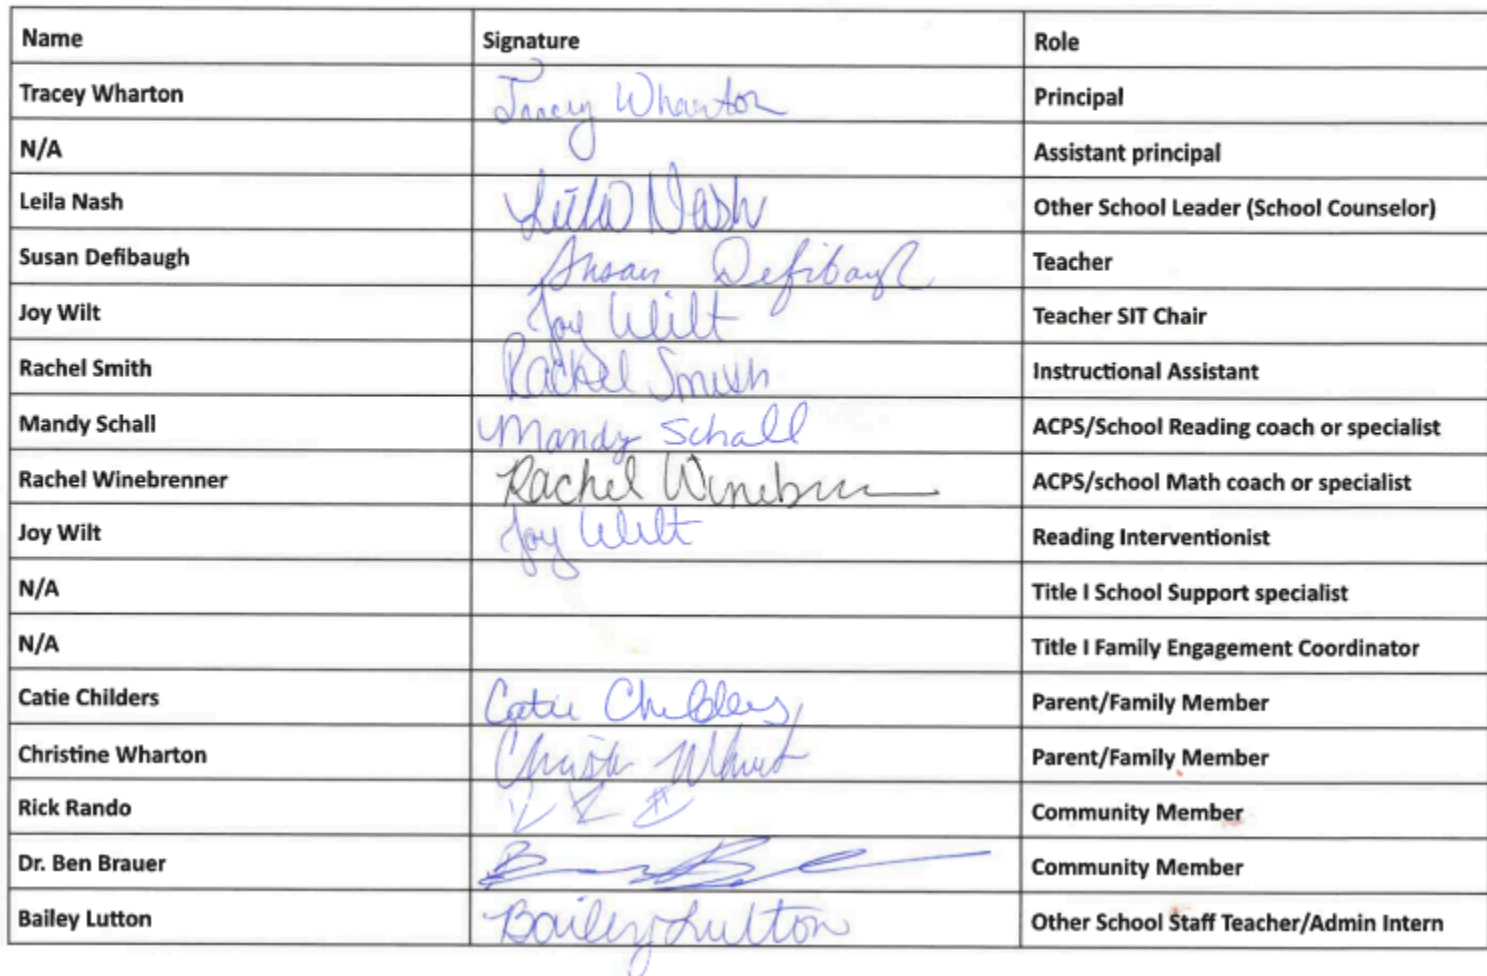 Name Signature Role
Tracey Wharton Tracey Wharton Principal
N/A Assistant principal
Leila Nash Leila Nash Other School Leader (School Counselor)
Susan Defibaugh Susan Defibaugh Teacher
Joy Wilt Joy Wilt Teacher SIT Chair
Rachel Smith Rachel Smith Instructional Assistant
Mandy Schall Mandy Schall ACPS/School Reading coach or specialist
Rachel Winebrenner Rachel ACPS/school Math coach or specialist
Joy Wilt Joy Wilt Reading Interventionist
N/A Title I School Support specialist
N/A Title I Family Engagement Coordinator
Catie Childers Catie Childers Parent/Family Member
Christine Wharton Parent/Family Member
Rick Rando Community Member
Dr. Ben Brauer Community Member
Bailey Lutton Bailey Lutton Other School Staff Teacher/Admin Intern